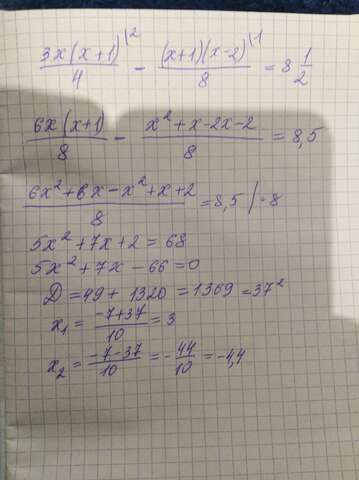 3x(x+1)|2 / 4 - (x+1)(x-2)|1 / 8 = 8 1/2
6x(x+1) / 8 - x²+x-2x-2 / 8 = 8,5
6x²+6x-x²+x+2 / 8 = 8,5 |·8
5x²+7x+2=68
5x²+7x-66=0
D=49+1320=1369=37²
x₁= -7+37 / 10 =3
x₂= -7-37 / 10 =- 44/10 =-4,4